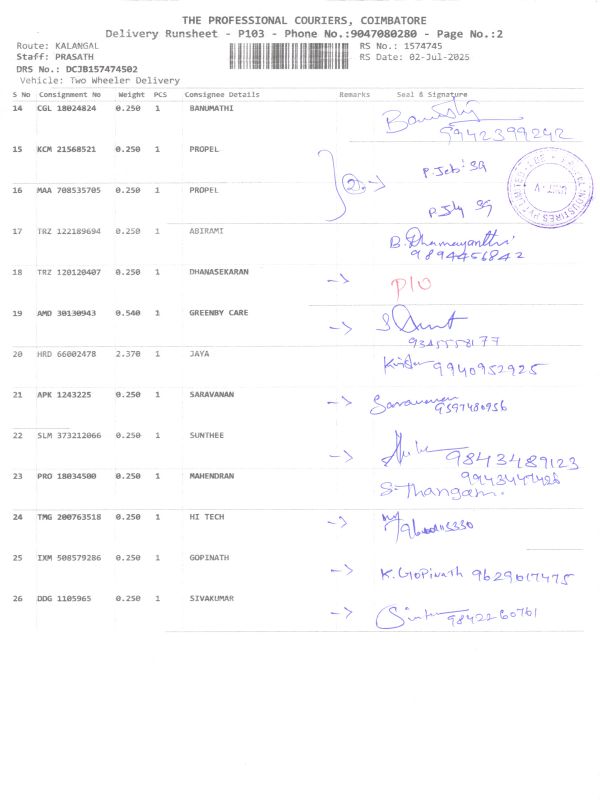 THE PROFESSIONAL COURIERS, COIMBATORE
Delivery Runsheet - P103 - Phone No.:9047080280 - Page No.:2
Route: KALANGAL RS No.: 1574745
Staff: PRASATH RS Date: 02-Jul-2025
DRS No.: DCJB157474502
Vehicle: Two Wheeler Delivery
S No Consignment No Weight PCS Consignee Details Remarks Seal & Signature
14 CGL 18024824 0.250 1 BANUMATHI
9942399242
15 KCM 21568521 0.250 1 PROPEL
2
16 MAA 708535705 0.250 1 PROPEL
17 TRZ 122189694 0.250 1 ABIRAMI B. Dhamayanthi
9894456842
18 TRZ 120120407 0.250 1 DHANASEKARAN
19 AMD 30130943 0.540 1 GREENBY CARE
9345558177
20 HRD 66002478 2.370 1 JAYA 9940952925
21 APK 1243225 0.250 1 SARAVANAN Saravanan
9597480956
22 SLM 373212066 0.250 1 SUNTHEE 9843489123
23 PRO 18034500 0.250 1 MAHENDRAN
S-Thangam.
24 TMG 200763518 0.250 1 HI TECH
25 IXM 508579286 0.250 1 GOPINATH K. Gopinath 9629017475
26 DDG 1105965 0.250 1 SIVAKUMAR 9842260761